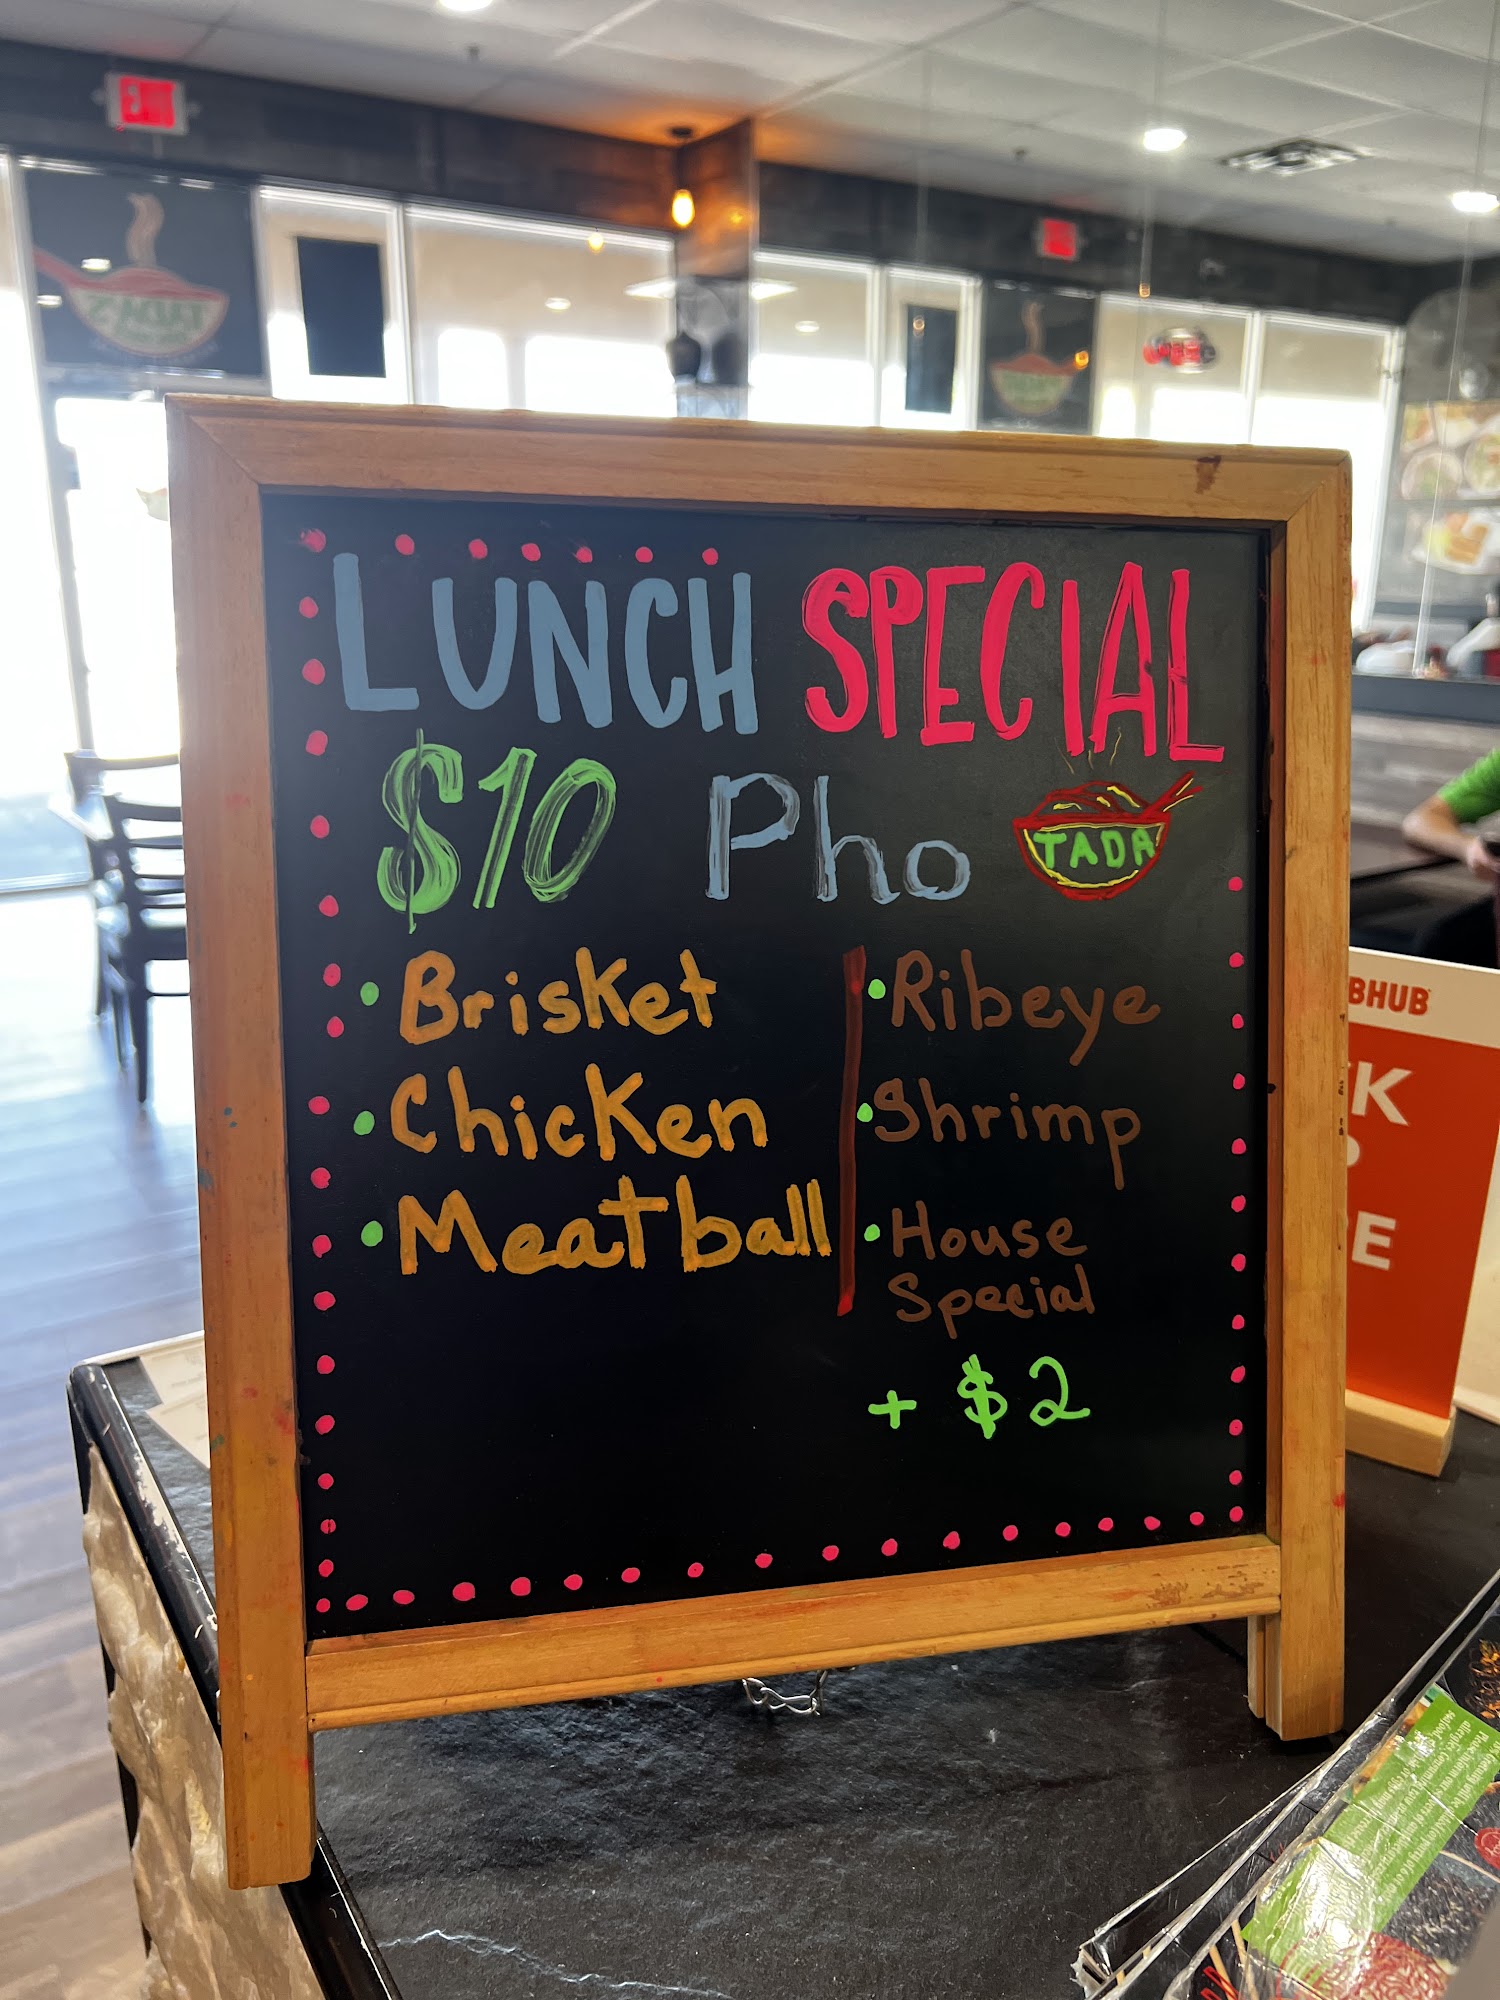 LUNCH SPECIAL
$10 Pho
TADA
• Brisket
• Chicken
• Meatball
• Ribeye
• Shrimp
• House
Special
+ $2
BHUB